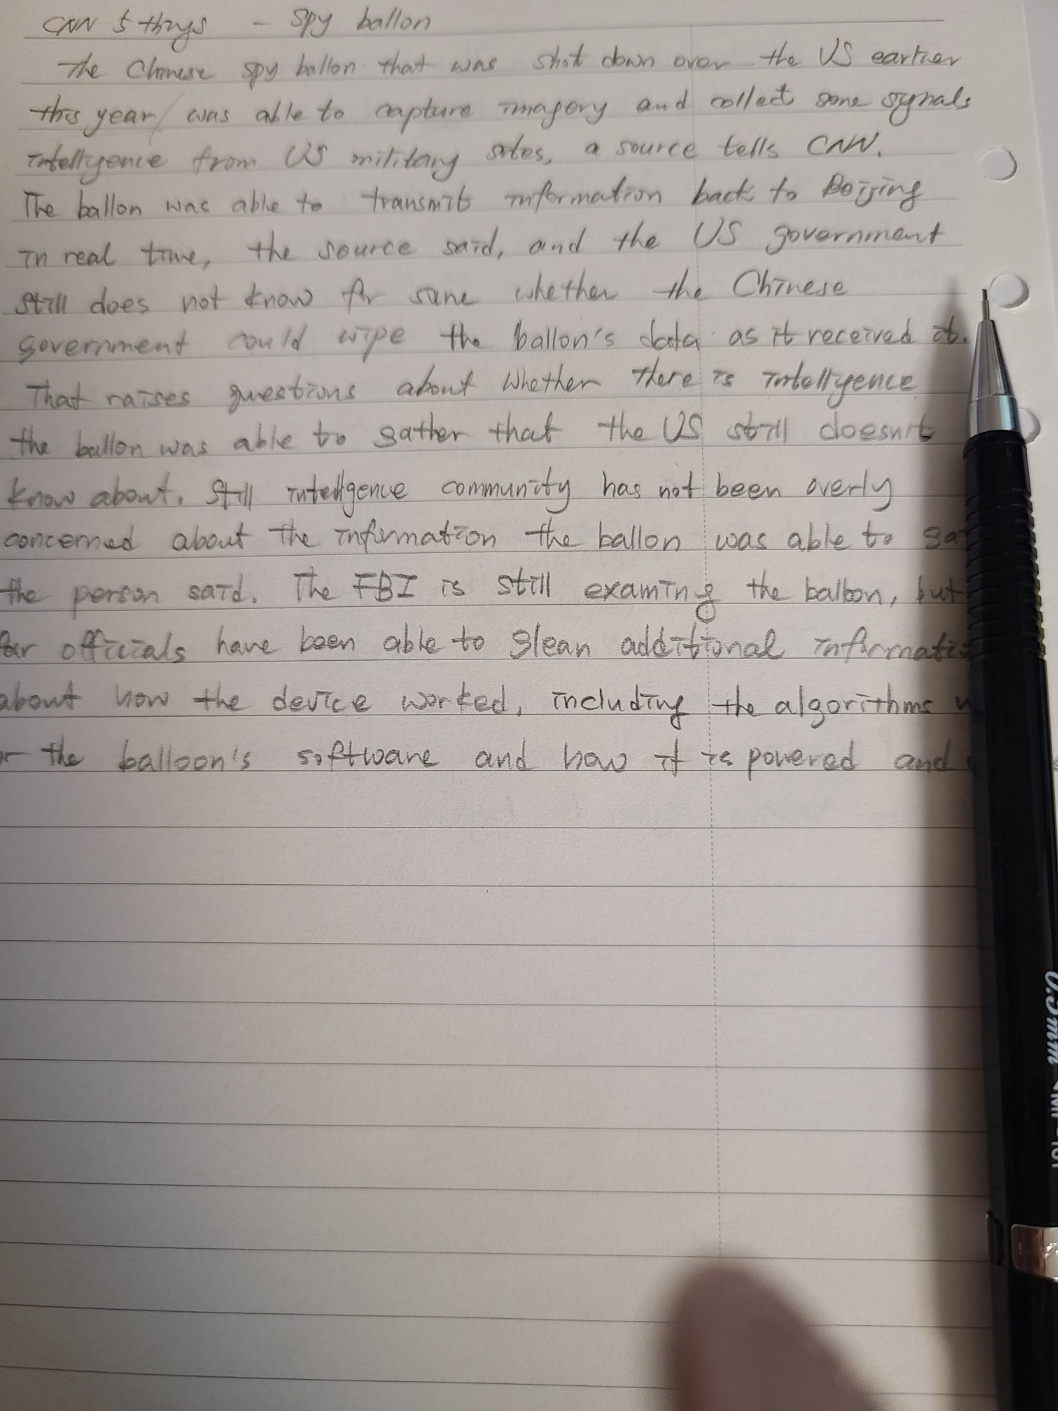 CNN 5 things - Spy ballon
The Chinese spy ballon that was shot down over the US eartier
this year was able to capture imagery and collect some signals
intelligence from US military sites, a source tells CNN.
The ballon was able to transmit information back to Beijing
in real time, the source said, and the US government
still does not know for sure whether the Chinese
government could wipe the ballon's data as it received it.
That raises questions about whether there is intelligence
the ballon was able to gather that the US still doesn't
know about. Still intelligence community has not been overly
concerned about the information the ballon was able to
the person said. The FBI is still examing the balloon, but
far officials have been able to glean additional
about how the device worked, including the algorithms
the balloon's software and how it is powered and
0.5mm